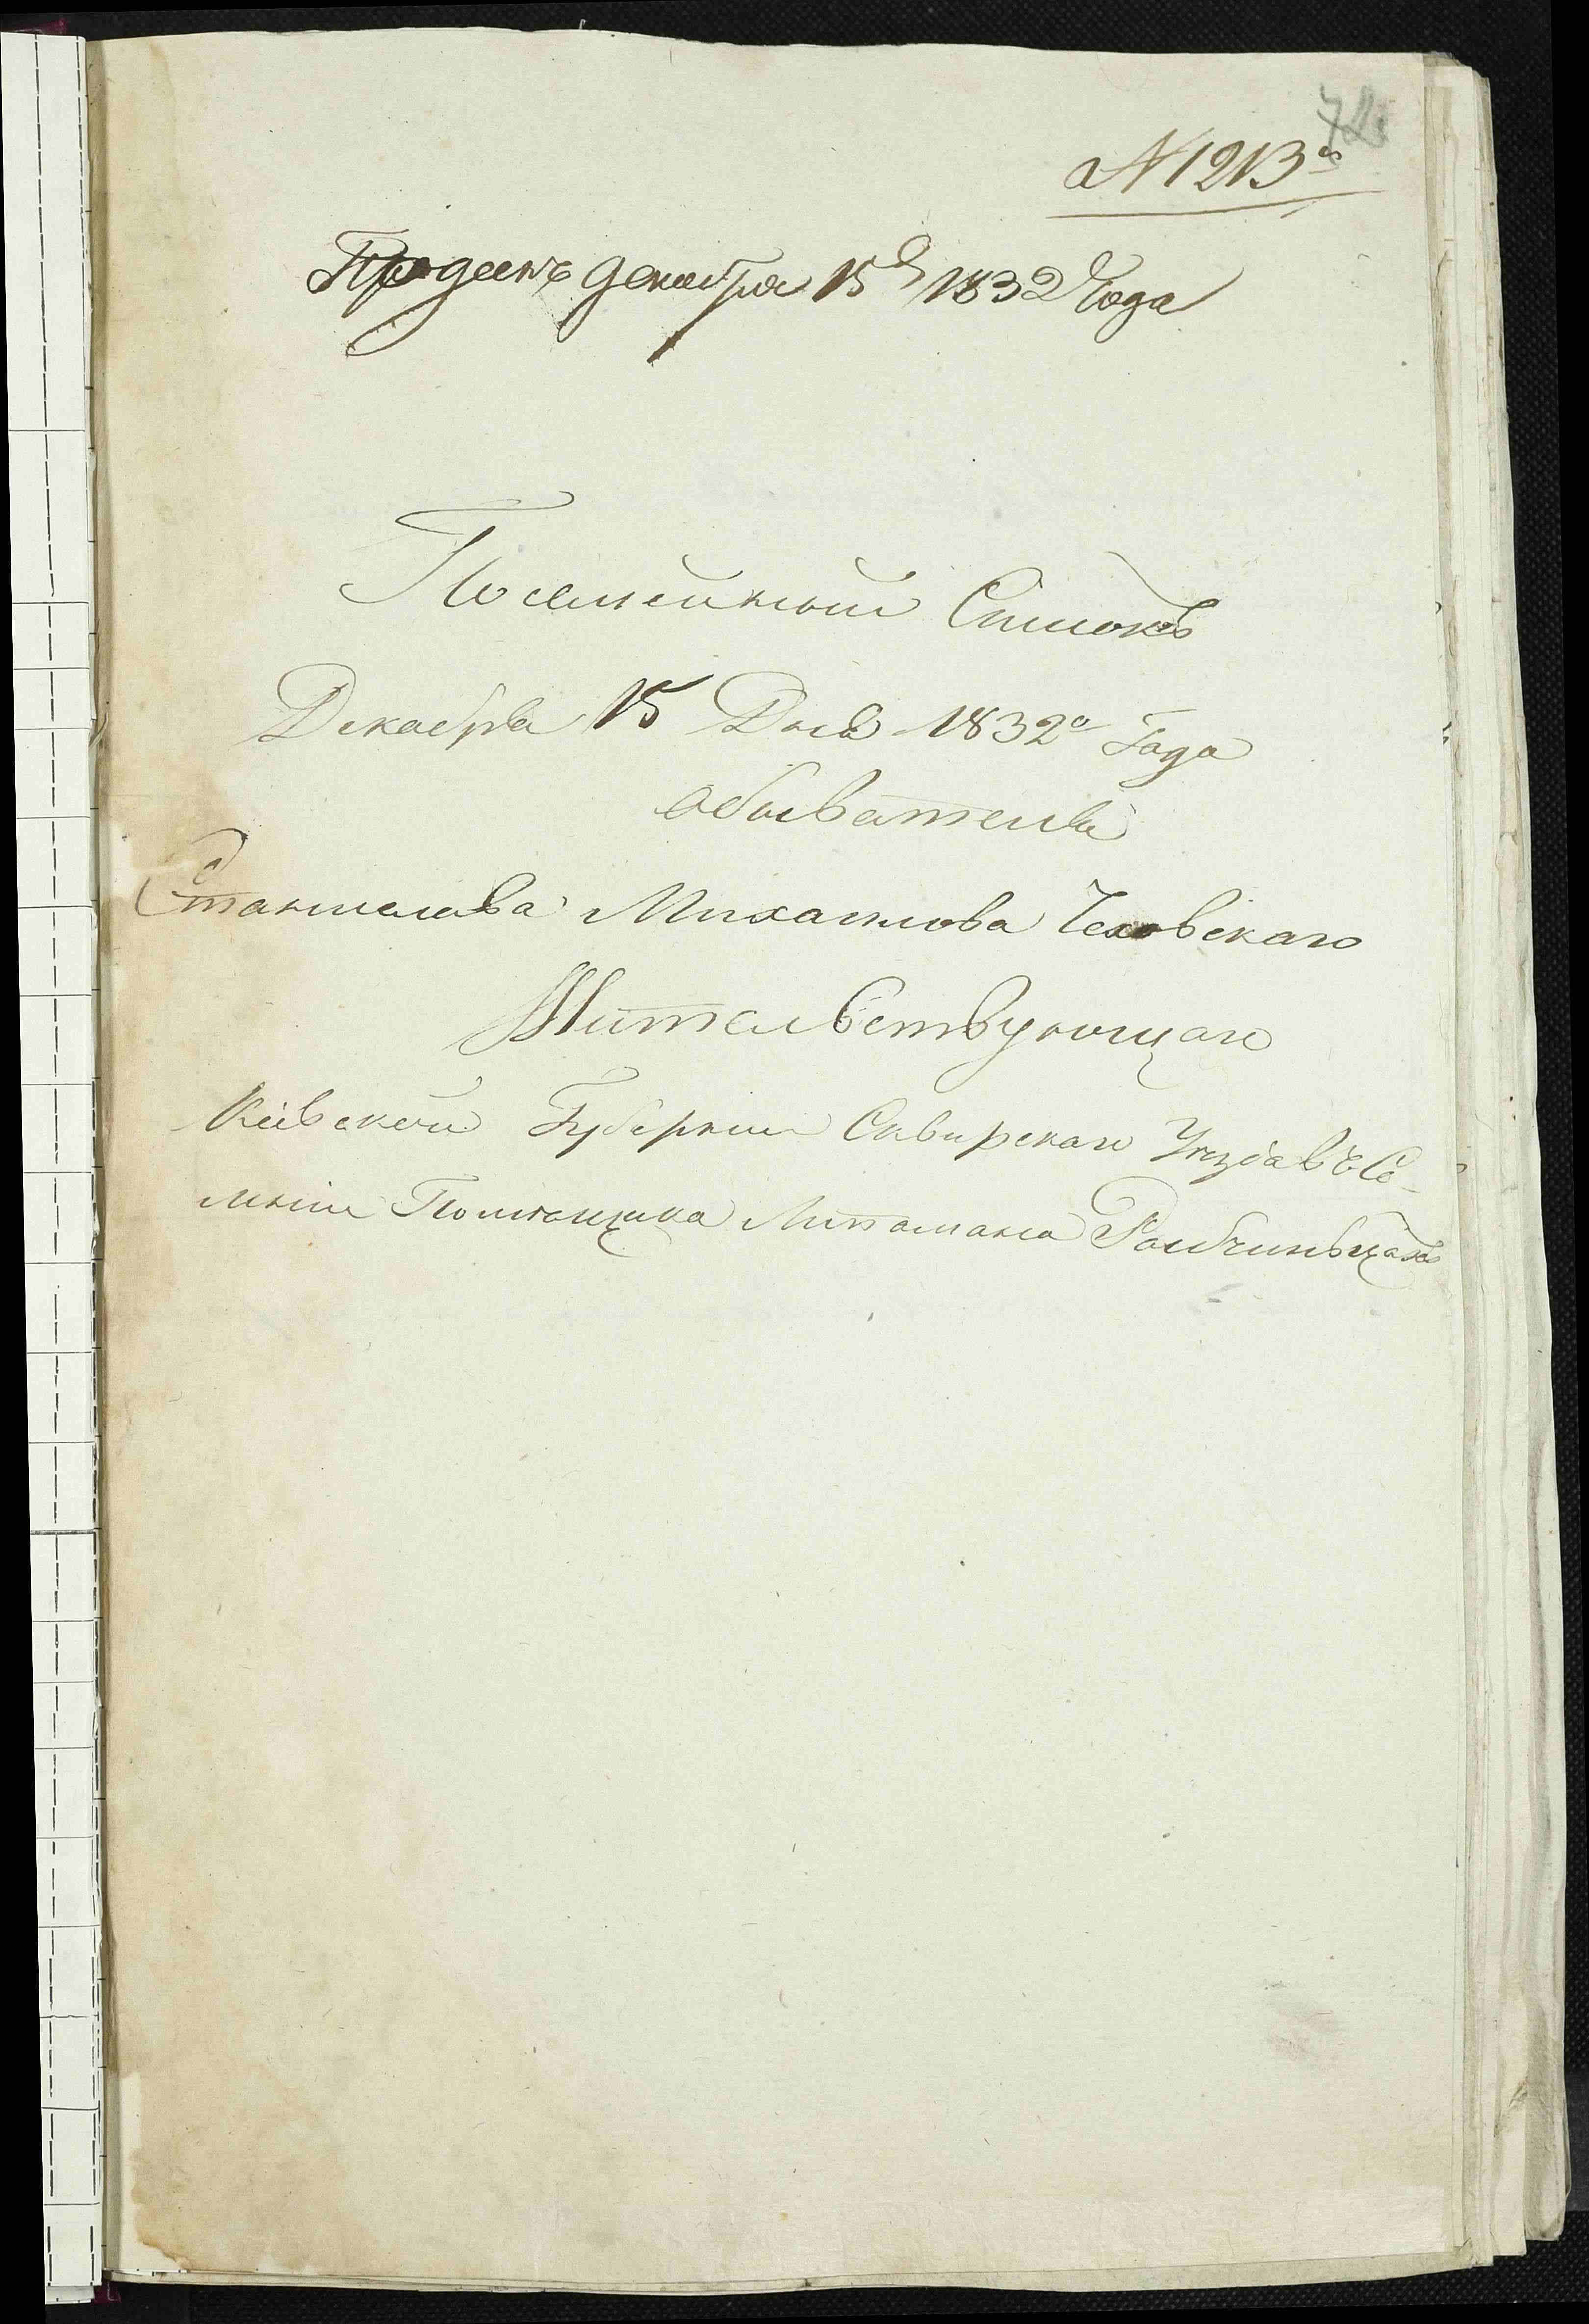 72
№ 1213й
Продан Декабря 15 д 1832 Года
Посемейный Список
Декабря 15 Дня 1832а Года
обывателя
Станислава Михаилова Чеховскаго
Жительствующаго
Кіевской Губерніи Сквирскаго Уезда въ Се-
леніи Помѣщика Липомана Ромбчинцахъ